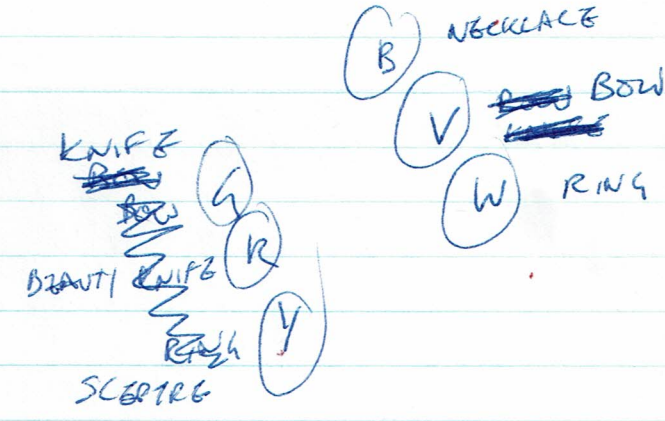 B NECKLACE
V BOW
W RING
KNIFE
BOW G
BEAUTY KNIFE R
RING Y
SCEPTRE